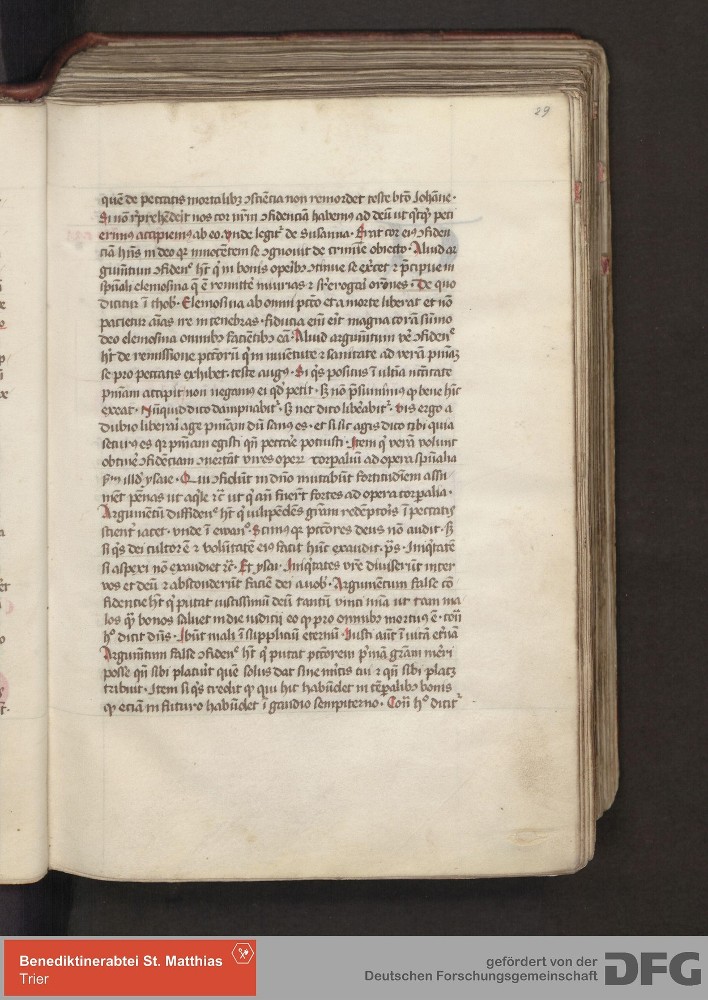 29
quē de peccatis mortalibꝫ ꝯsciēcia non remordet teste bt̄o Johāne ·
Si nō rp̄rehēderit nos cor nr̄m ꝯfidenciā habemꝰ ad deū ut qͥcqͥd peti
erimꝰ accipiemꝰ ab eo · vnde legit̉ de Susanna · Erat cor eiꝰ ꝯfiden
ciā hn̄s in deo qr innocētem se ꝯgnouit de crimīe obiecto · Aliud ar
gumētum ꝯfidenͨ hꝫ qͥ in bonis opeībꝫ ꝯtinue se exercet et p̄cipue in
sp̄uali elemosina q̄ ē remittē iniurias et orōnes · De quo
dicitur ī thob · Elemosina ab omni pctō et a morte liberat et nō
pacietur aīas ire in tenebras · fiducia eni erit magna corā sūmo
deo elemosina omnibꝫ faciētibꝫ eā · Aliud argumētum ꝯfidenͨ
hꝫ de remissione pctōrū qͥ in iuuētute et sanitate ad verā pniāꝫ
se pro peccatis exhibet · teste augꝰ · Si qͥs positus ī ultīa nc̄citate
pniam accipit non negamꝰ ei qd̓ petit · sꝫ nō p̄sumimꝰ ꝙ bene hīc
exeat · Nūquid dico dampnabit̉ · sꝫ nec dico liberabit̉ · vis ergo a
dubio liberari age pniam dū sanus es · et si sic agis dico tibi quia
securus es qr pniam egisti qn̄ peccare potuisti · Item qͥ verā volunt
obtinē ꝯfidēciam ꝯuertāt vires opeꝝ corpaliū ad opera sp̄ualia
sm̄ illd̓ ysaie · Qui ꝯfidūt in dn̄o mutabūt fortitudīem assu
mēt pēnas ut aqͥle ⁊c̄ ut qͥ an̄ fuerūt fortes ad opera corpalia ·
Argumētū diffidenͨ hꝫ qͥ uilipēdēs grām redēptoris ī peccatis
scient̉ iacet · vnde ī ewanͦ · Scimꝰ qr pctōres deus nō audit · sꝫ
si qͥs dei cultor ē ⁊ volūtatē eiꝰ facit hūc exaudit · ps̄ · Iniqͥtatē
si aspexi nō exaudiet ⁊c̄ · Et ysai · Iniqͥtates vr̄e diuiserūt inter
vos et deū ⁊ absconderūt faciē dei a uob · Argumētum false cō
fidentie hꝫ qͥ putat iustissimū deū tantū vinci mīa ut tam ma
los qͣꝫ bonos saluet in die iudicij eo ꝙ pro omnibꝫ mortuꝰ ē · cont̄
hͦ dicit dn̄s · Ibūt mali ī suppliciū eternū · Iusti aūt ī uitā et̓nā
Argumētum false ꝯfidenͨ hꝫ qͥ putat pctōrem pͥmā grām meri
posse qn̄ sibi placuit̉ quē solus dat sine mītis cui ⁊ qn̄ sibi placꝫ
tribuit · Item si qͥs credit ꝙ qui hic habūdet in tēpalibꝫ bonis
ꝙ eciā in futuro habūdet ī gaudio sempiterno · Cont̄ hͦ dicit̉
Benediktinerabtei St. Matthias
Trier
gefördert von der
Deutschen Forschungsgemeinschaft
DFG